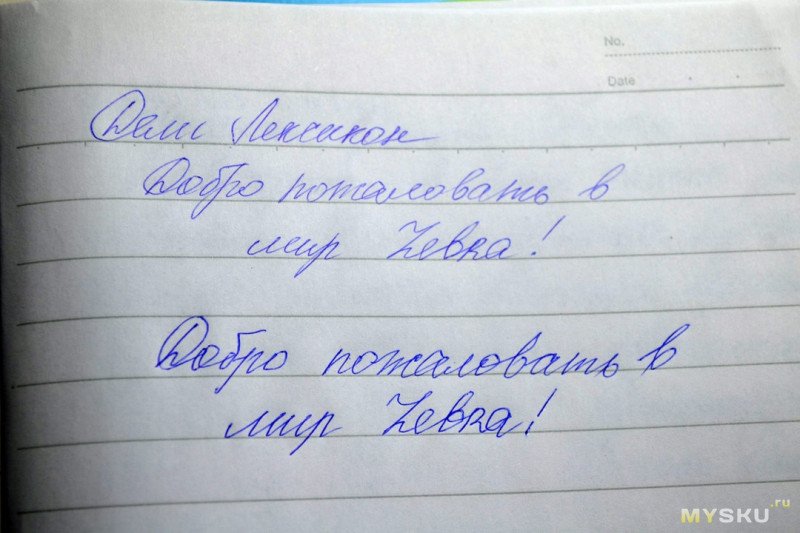 No.
Date
Дели Лексикон
Добро пожаловать в
мир
Добро пожаловать в
мир
MYSKU.ru